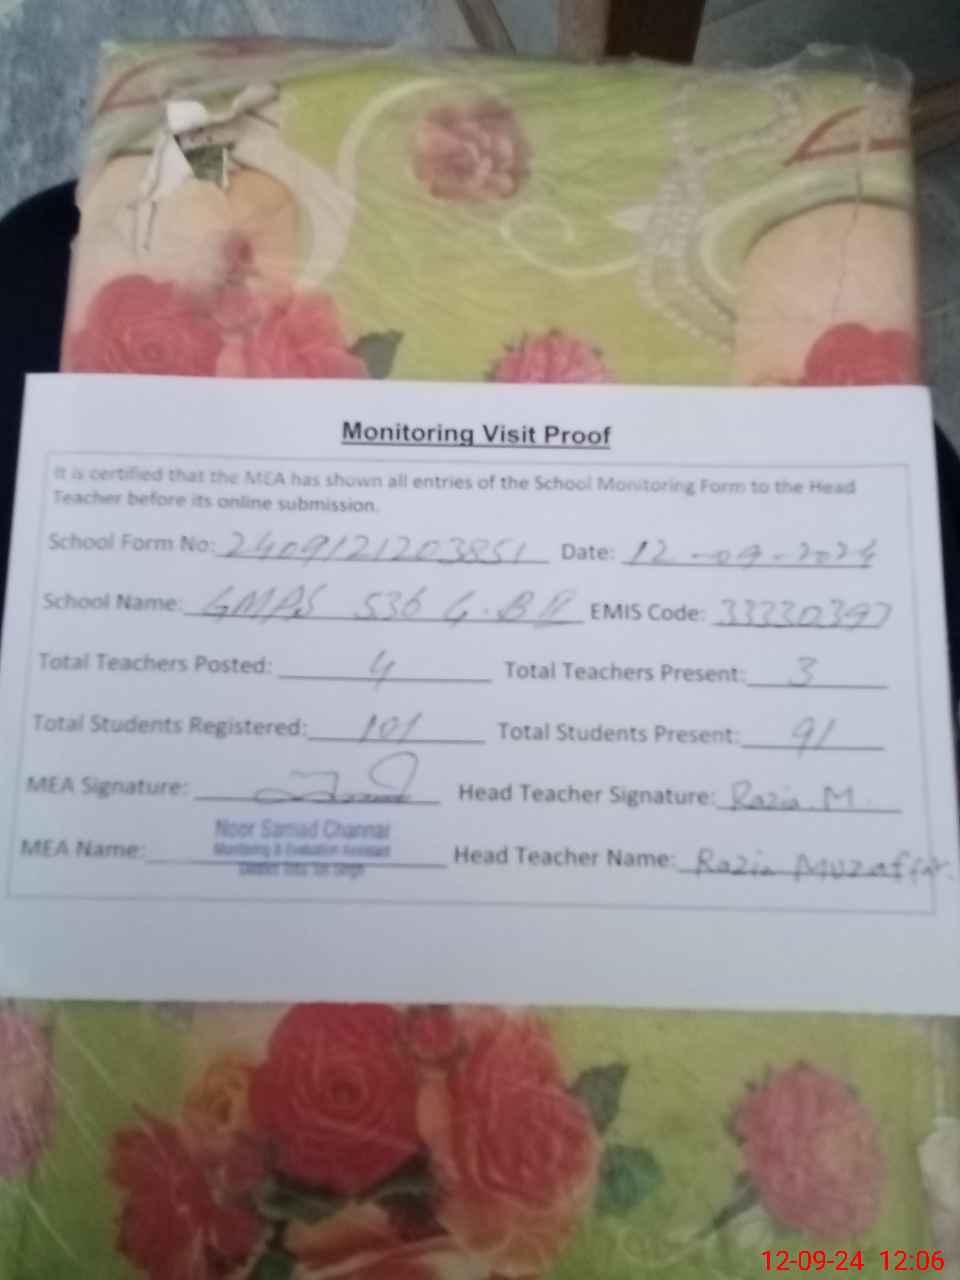 Monitoring Visit Proof
It is certified that the MEA has shown all entries of the School Monitoring Form to the Head
Teacher before its online submission.
School Form No: 2409121203851 Date: 12-09-2024
School Name: GMPS 536 G.B EMIS Code: 33330397
Total Teachers Posted: 4 Total Teachers Present: 3
Total Students Registered: 101 Total Students Present: 91
MEA Signature: Head Teacher Signature: Razia.M.
Noor Samad Channar
Monitoring & Evaluation Assistant
MEA Name: Head Teacher Name: Razia Muzaffar.
District Toba Tek Singh
12-09-24 12:06